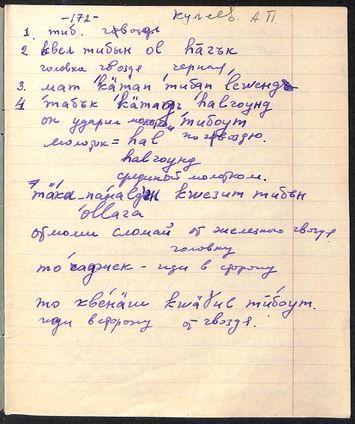 -172- Кулеев А.П.
1. тиб. гвоздь
2 квел тибын ов hāгък
головка гвоздя черная,
3. мат кӓтап тибап
4 табък hавгоунд
он ударил молотком тибоут
молоток = hав по гвоздю.
hавгоунд
срединой молотком.
тӓка-панавдж кwезит тибын
оллага
отломи сломай от железного гвоздя
головку
то чаджек - иди в сторону
то квенӓш кwӓгив тибоут.
иди в сторону от гвоздя.